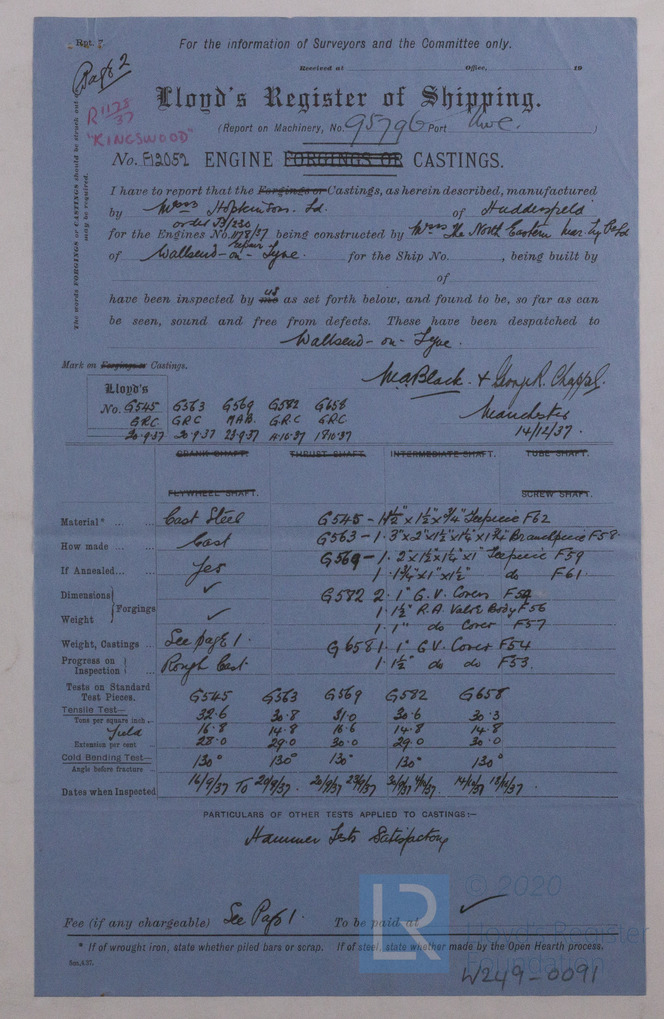 Rpt. 7.
For the information of Surveyors and the Committee only.
Page 2
Received at Office, 19
R 1128/37
"KINGSWOOD"
Lloyd's Register of Shipping.
(Report on Machinery, No. 95796 Port Nwc. )
No. F12052 ENGINE FORGINGS OR CASTINGS.
The words FORGINGS or CASTINGS should be struck out as may be required.
I have to report that the Forgings or Castings, as herein described, manufactured
by Messrs Hopkinsons Ld. of Huddersfield
order
for the Engines No. 1178/37 being constructed by Messrs The North Eastern Mar. Eng Co Ld
repair
of Wallsend-on-Tyne. for the Ship No. , being built by
of
us
have been inspected by me as set forth below, and found to be, so far as can
be seen, sound and free from defects. These have been despatched to
Wallsend-on-Tyne.
Mark on Forgings or Castings.
W.A. Black. & George R. Chappel.
Manchester
14/12/37.
Lloyd's
No. G545 G563 G569 G582 G658
GRC. GRC WAB. GRC GRC.
20.9.37 20.9.37 23.9.37 4.10.37 18.10.37
CRANK SHAFT. THRUST SHAFT. INTERMEDIATE SHAFT. TUBE SHAFT.
FLYWHEEL SHAFT. SCREW SHAFT.
Material* ... Cast Steel G545 - 1 1½" x 1½" x ¾" Teepiece F62
How made ... Cast G563 - 1. 3" x 2" x 1½" x 1¼" x 1¾" Branchpiece F58.
If Annealed... Yes G569 - 1. 2" x 1½" x 1¼" x 1" Teepiece F59
1. 1¾" x 1" x 1½" do F61.
Dimensions Forgings ✓ G582 2. 1" G.V. Covers
1. 1½" R.A. Valve Body F56
Weight ✓ 1. 1" do Cover F57
Weight, Castings ... See page 1. G658 1. 1" G.V. Cover F54
Progress on Inspection Rough Cast. 1. 1½" do do F53.
Tests on Standard Test Pieces. G545 G563 G569 G582 G658
Tensile Test—
Tons per square inch ... 32.6 30.8 31.0 30.6 30.3
Yield 16.8 14.8 16.6 14.8 14.8
Extension per cent 28.0 29.0 30.0 29.0 30.0
Cold Bending Test—
Angle before fracture ... 130° 130° 130° 130° 130°
Dates when Inspected 16/9/37 TO 20/9/37.
PARTICULARS OF OTHER TESTS APPLIED TO CASTINGS:—
Hammer Tests Satisfactory
Fee (if any chargeable) See Page 1. To be paid at ✓
* If of wrought iron, state whether piled bars or scrap. If of steel, state whether made by the Open Hearth process.
LR
© 2020
Lloyd's Register
Foundation
W249-0091